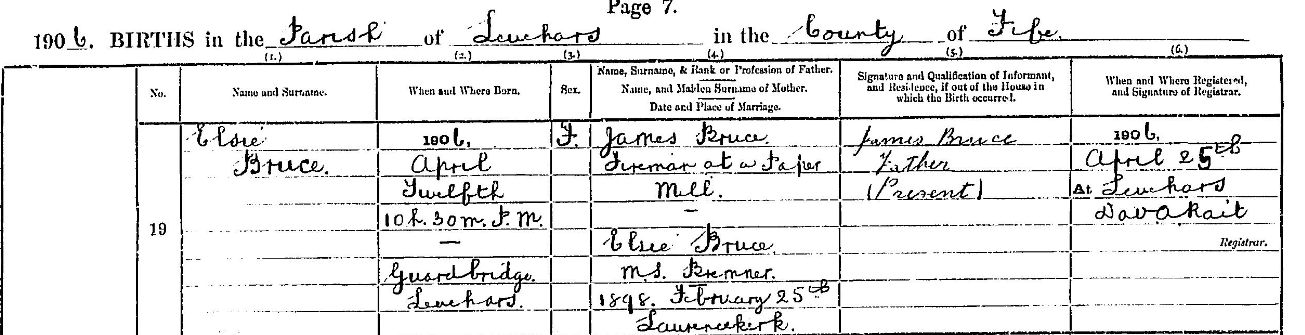 Page 7.
1906. BIRTHS in the Parish of Leuchars in the County of Fife.
(1.) (2.) (3.) (4.) (5.) (6.)
No.
Name and Surname.
When and Where Born.
Sex.
Name, Surname, & Rank or Profession of Father.
Name, and Maiden Surname of Mother.
Date and Place of Marriage.
Signature and Qualification of Informant,
and Residence, if out of the House in
which the Birth occurred.
When and Where Registered,
and Signature of Registrar.
19
Elsie
Bruce.
1906,
April
Twelfth
10h. 30m. P.M.
—
Guardbridge.
Leuchars.
F.
James Bruce.
Fireman at a Paper
Mill.
—
Elsie Bruce
M.S. Bremner.
1898. February 25th
Laurencekirk.
James Bruce
Father
(Present)
1906,
April 25th
At Leuchars
Registrar.